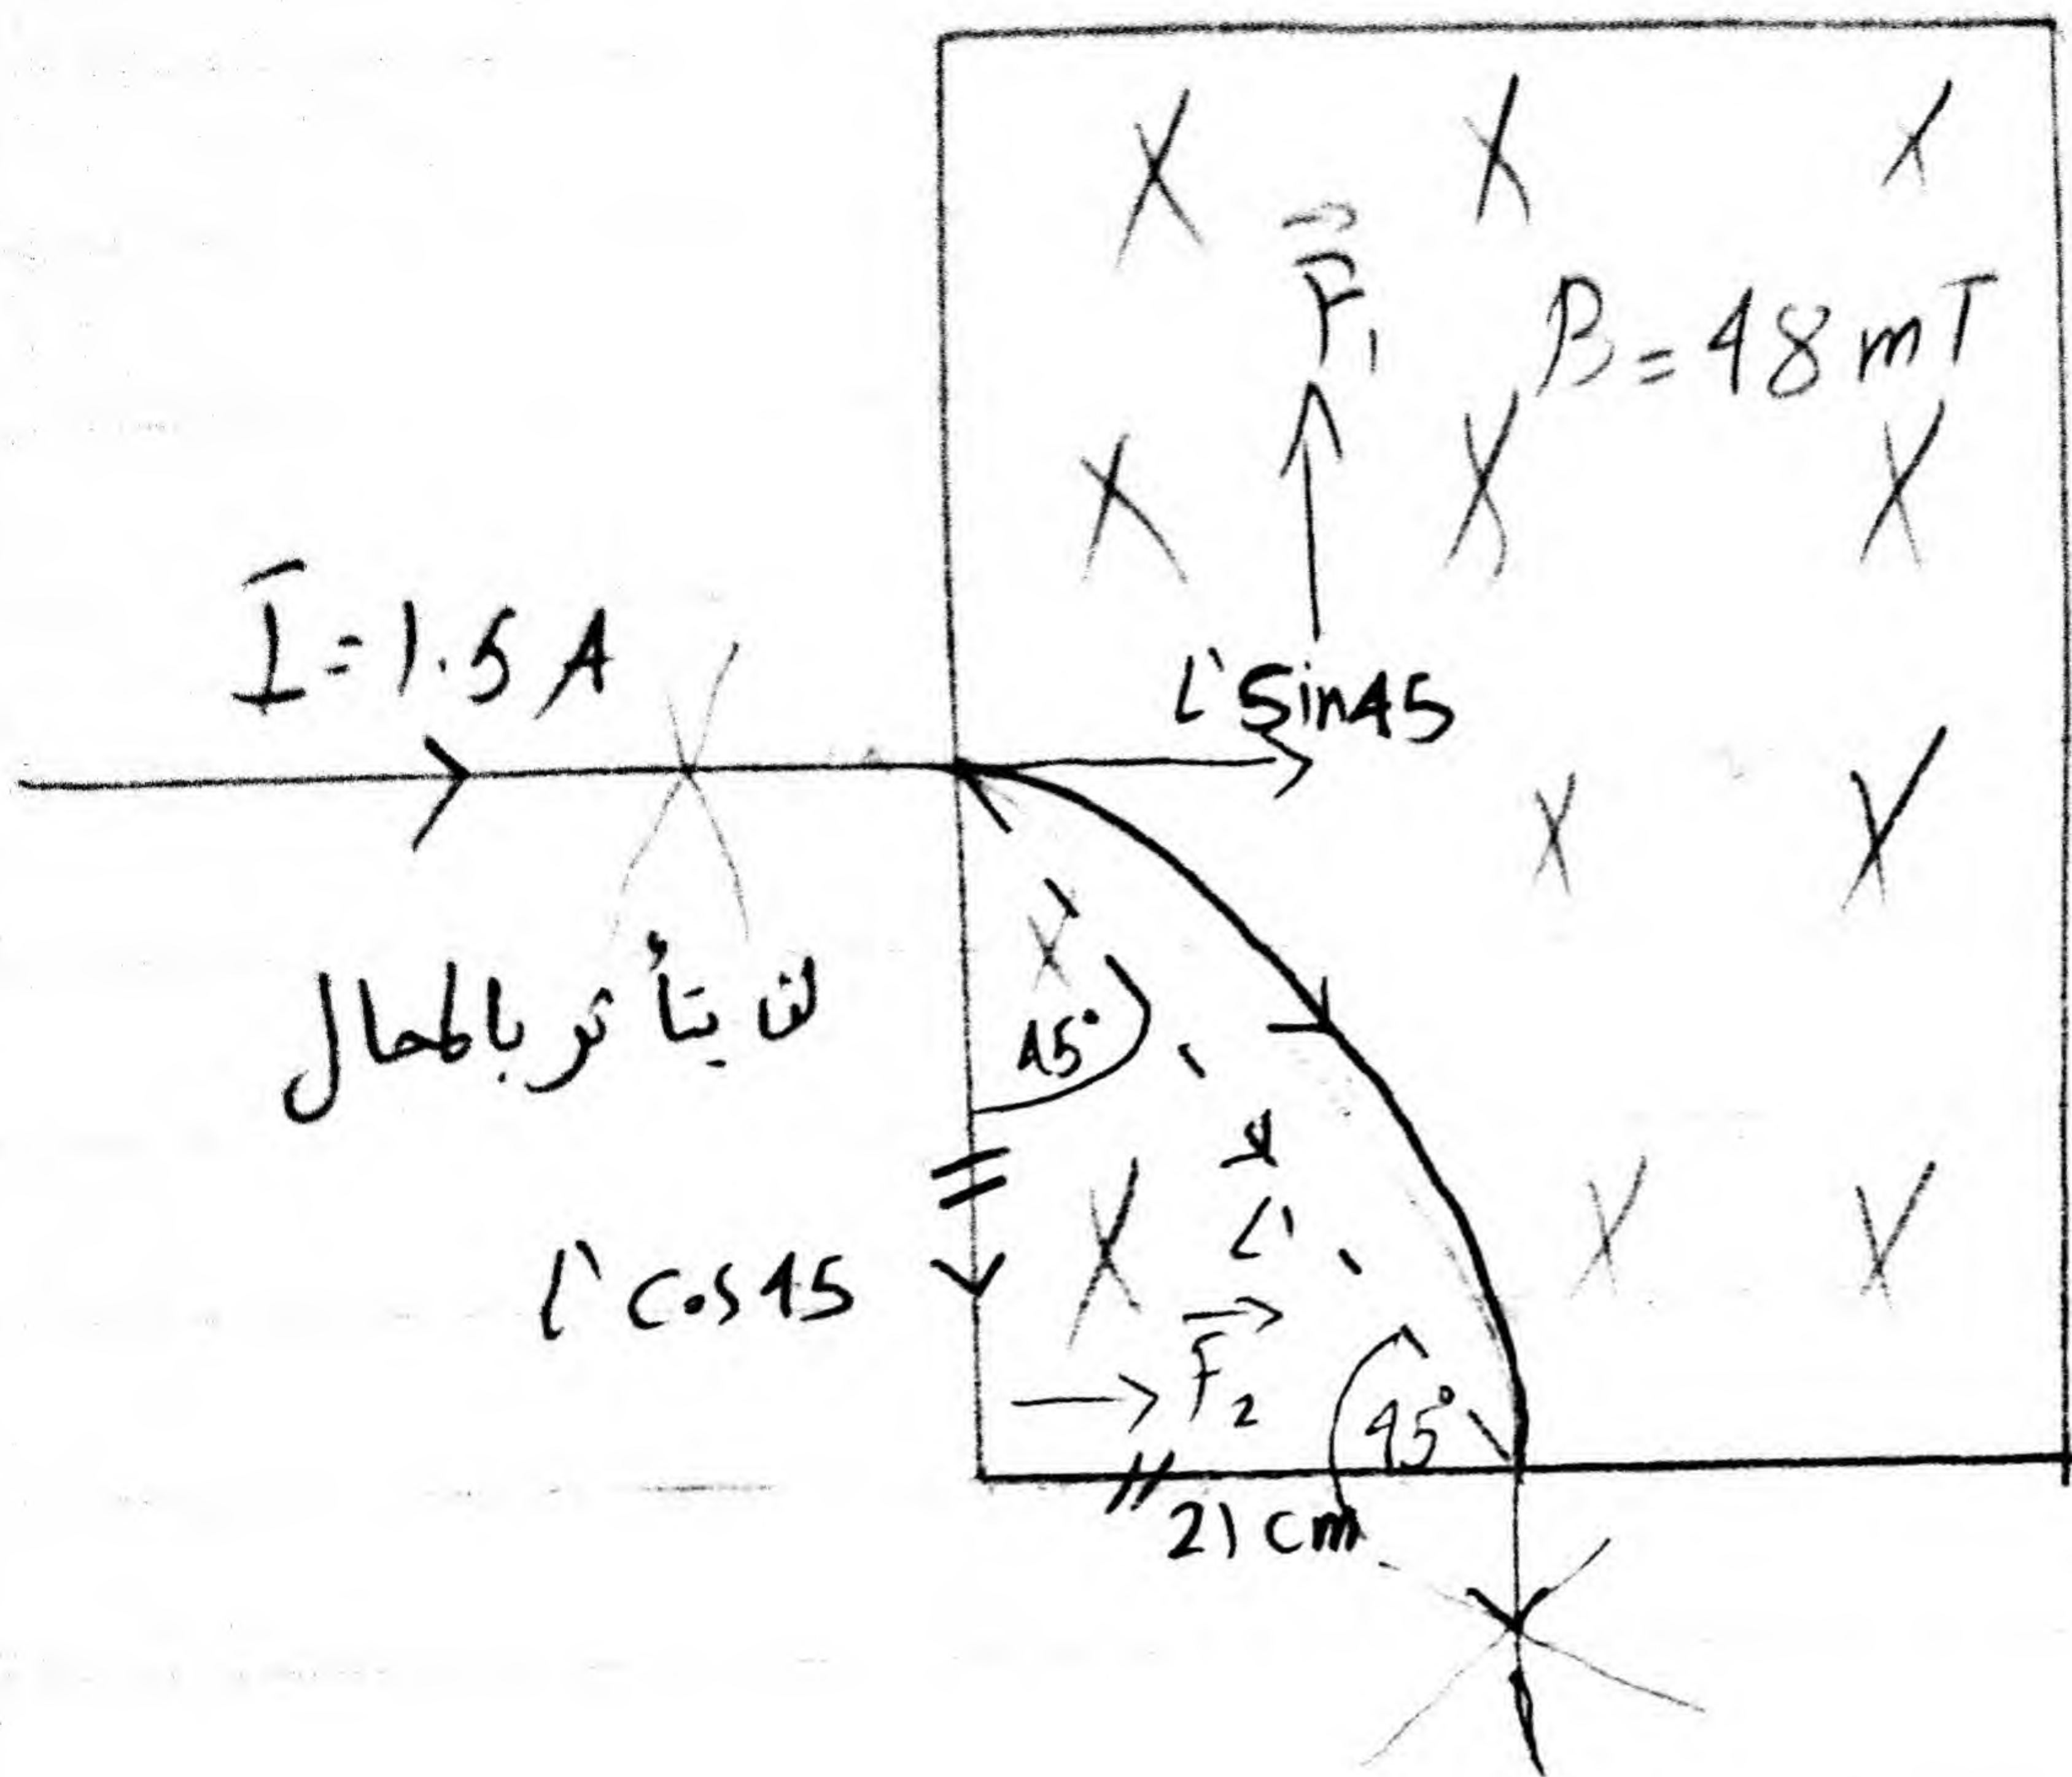 F₁
B = 48 mT
I = 1.5 A
L' Sin45
لن يتأثر بالمجال
45°
L'
L' Cos 45
F₂
45°
21 cm